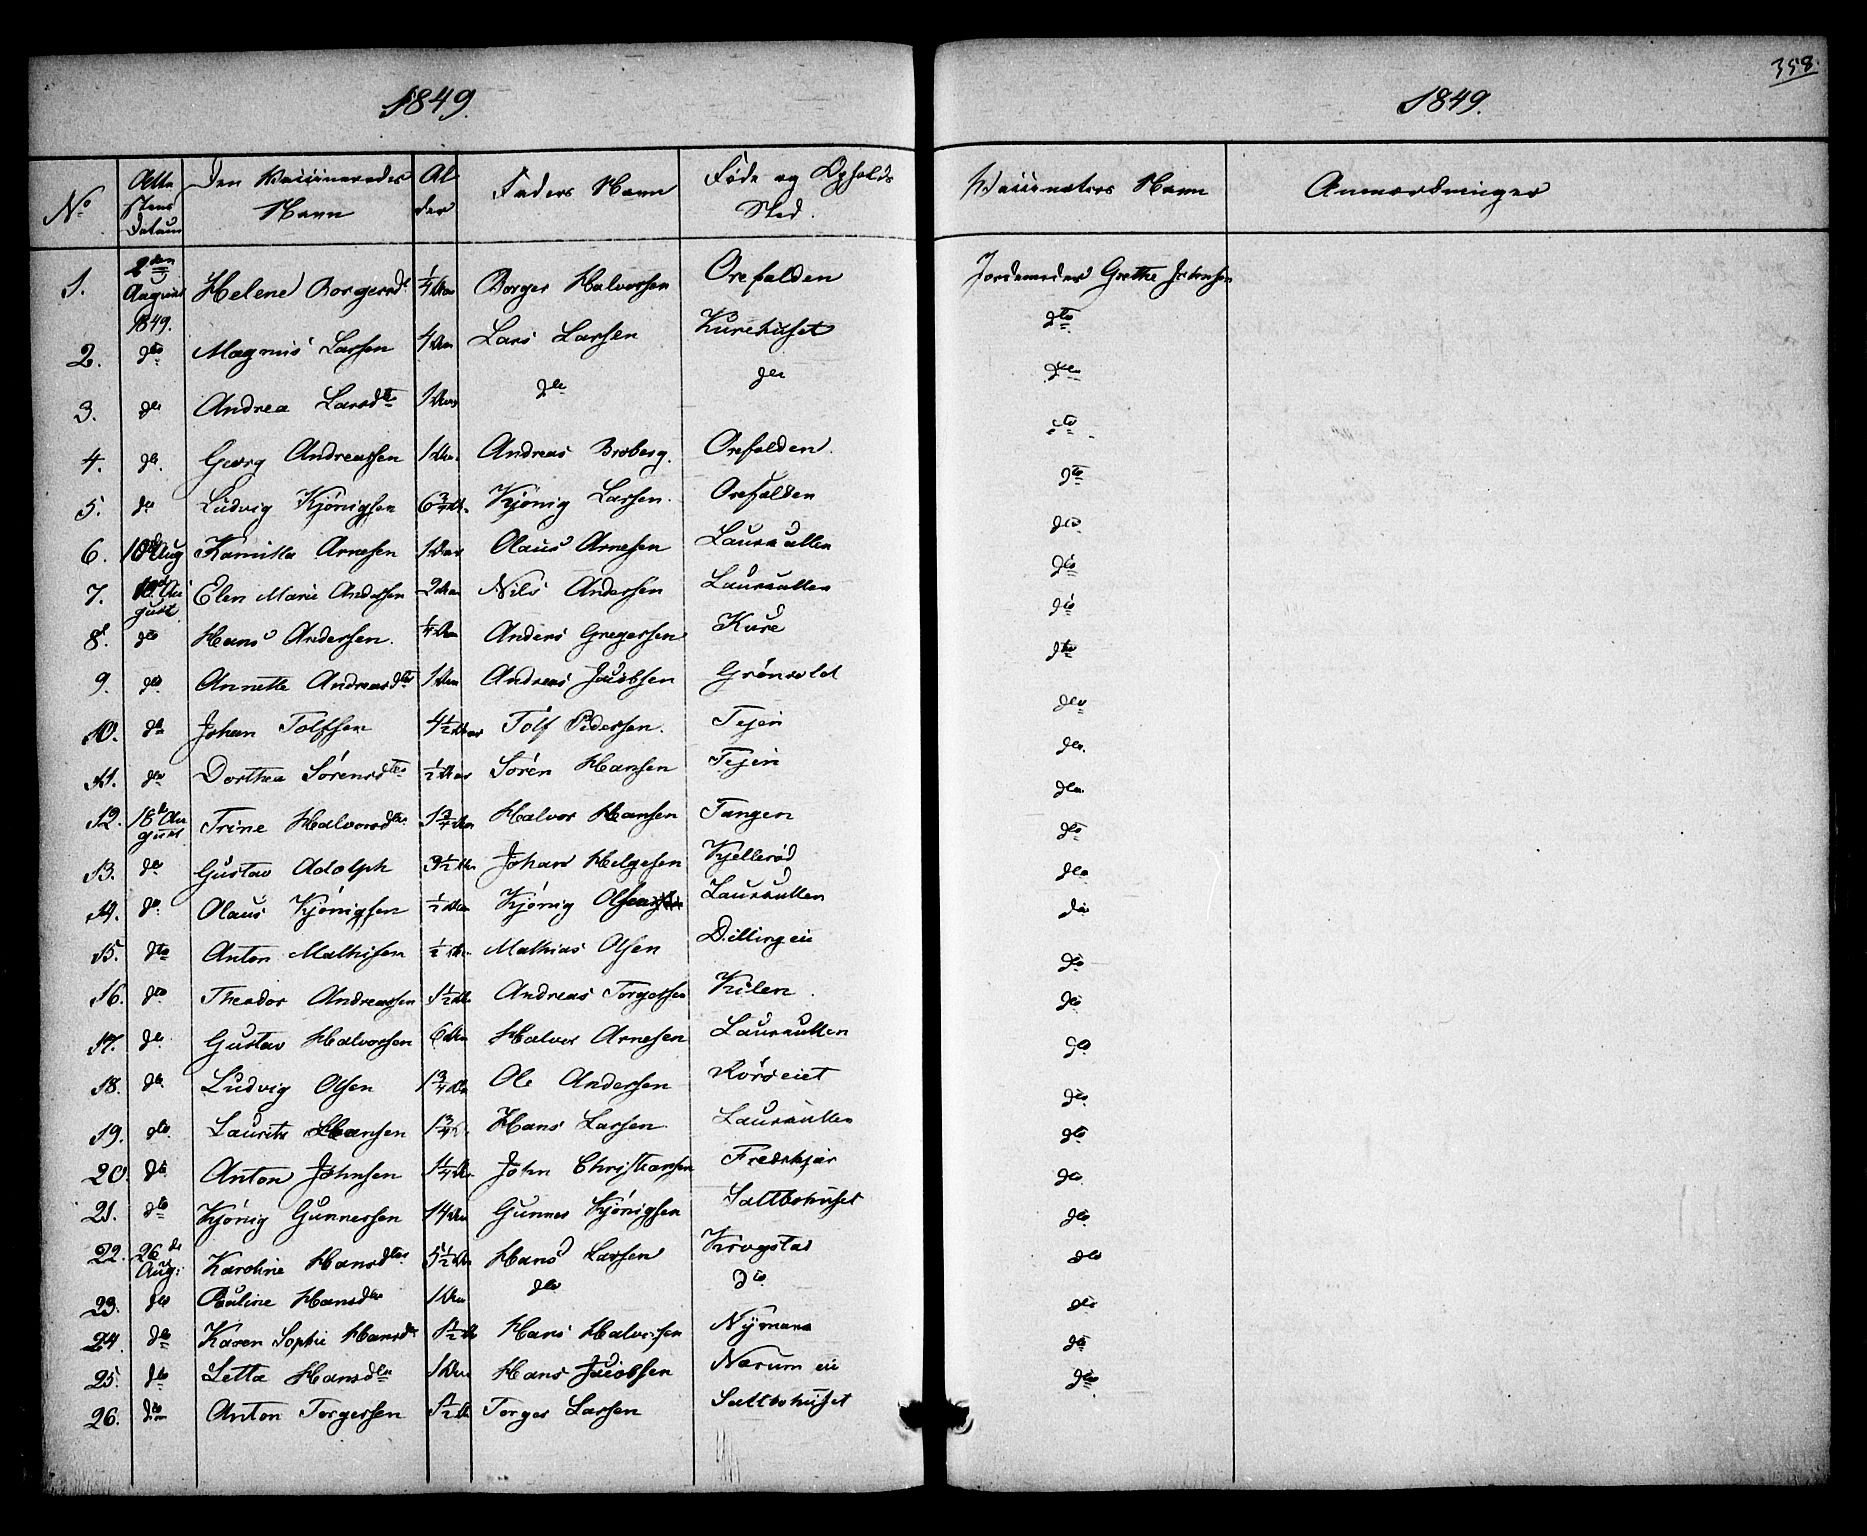 358.
1849.
1849.
No
Attestens Datum
Den Vaccineredes Navn
Alder
Faders Navn
Føde og Opholds Sted.
Vaccinators Navn
Anmærkninger
1. 2den August 1849. Helene Borgersdt 1/4 Aar Borger Halvorsen Orefalden Jordemoder Grethe
2. dto Magnus Larsen 4 Aar Lars Larsen Kurehuset dto
3. dto Andrea Larsdtr 1 Aar dto dto dto
4. dto. Georg Andreassen 1 Aar. Andreas Broberg. Orefalden. dto
5. dto Ludvig Kjönigsen 6 3/4 A. Kjönig Larsen. Orefalden dto
6. Aug Kamilla Arnesen 1 Aar Olaus Arnesen Laurkullen dto
7. August Elen Marie Andersen 2 Aar Nils Andersen Laurkullen dto
8. dto Hans Andersen. 1/4 Aar Anders Gregersen Kure dto
9. dto Annette Andreasdtr 1 Aar Andreas Jacobsen Grönvold dto
10. dto Johan Tolfsen 4 1/2 Aar Tolf Pedersen. Tejen dto
11. dto Dorthea Sörensdtr 1/2 Aar Sören Hansen Tejen dto.
12. 18de August Trine Halvorsdtr 1 3/4 Aar Halvor Hansen Tangen dto
13. dto Gustav Adolph 3 1/2 Aar Johan Helgesen Kjelleröd dto
14. dto. Olaus Kjönigsen 1/2 Aar Kjönig Olsen Laurkullen dto
15. dto Anton Mathisen 1/2 Aar Mathias Olsen Dillingeie dto
16. dto Theodor Andreassen 1 1/2 Aar Andreas Torgersen Kilen dto
17. dto Gustav Halvorsen 6 Aar Halvor Arnesen Laurkullen dto
18. dto Ludvig Olsen 1 3/4 Aar Ole Andersen Rörseiet dto
19. dto. Lauritz Hansen 1 3/4 Hans Larsen Laurkullen dto
20. dto Anton Johnsen 1 1/4 Aar John Christiansen Fredskjær dto
21. dto Kjönig Gunnersen 14 Aar Gunner Kjönigsen Saltbohuset dto
22. 26de Aug: Karoline Hansdtr 5 1/2 Aar Hans Larsen Krogstad dto
23. dto Pauline Hansdtr 1 Aar dto dto. dto
24. dto Karen Sophie Hansdtr 1 1/2 A Hans Halvorsen Nymark dto
25. dto Letta Hansdtr 1 Aar Hans Jacobsen Norum eie dto
26. dto Anton Torgersen 1 1/2 A Torger Larsen Saltbohuset dto